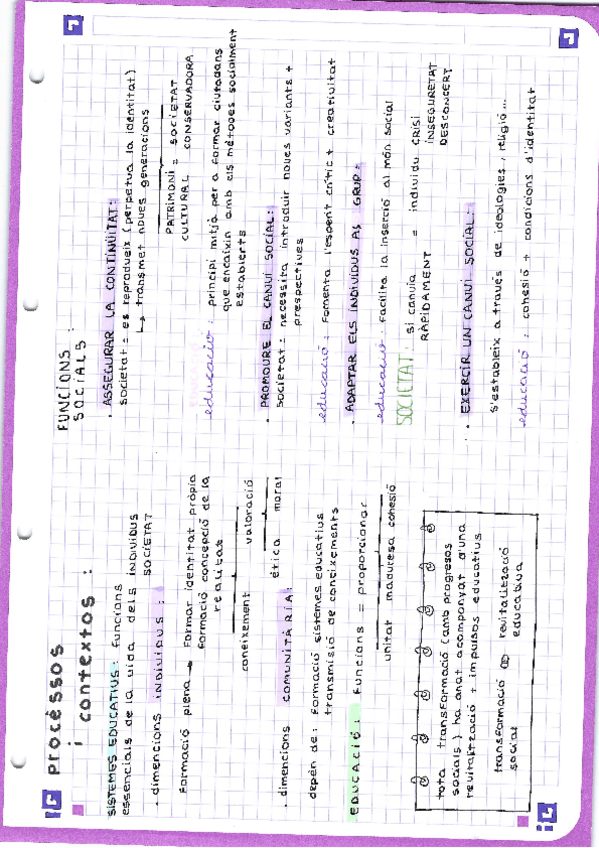 procéssos
i contextos :
SISTEMES EDUCATIUS : Funcions
essencials de la vida dels individus
SOCIETAT
· dimencions INDIVIDUS :
Formació plena → Formar identitat pròpia
formació concepció de la
realitat
coneixement valoració
· dimencions COMUNITÀRIA: ètica moral
depèn de : Formació sistemes educatius
transmisió de coneixements
EDUCACIÓ : Funcions = proporcionar
unitat maduresa cohesió
tota transformació (amb progresos
socials) ha anat acompanyat d'una
revitalització + impulsos educatius
transformació ∞ revitalització
social educativa
FUNCIONS
SOCIALS :
· ASSEGURAR LA CONTINUÏTAT:
societat : es reprodueix (perpetua la identitat)
↳ transmet noves generacions
PATRIMONI = SOCIETAT
CULTURAL CONSERVADORA
educació : principi mitjà per a formar ciutadans
que encaixin amb els mètodes socialment
establerts
· PROMOURE EL CANVI SOCIAL:
societat : necessita introduir noves variants +
prespectives
educació : Fomenta l'esperit crític + creativitat
· ADAPTAR ELS INDIVIDUS AS GRUP:
educació : Facilita la inserció al món social
SOCIETAT: si canvia = individu CRISI
RÀPIDAMENT INSEGURETAT
DESCONCERT
· EXERCIR UN CANVI SOCIAL:
s'estableix a través de ideologies, religió...
educació : cohesió + condicions d'identitat